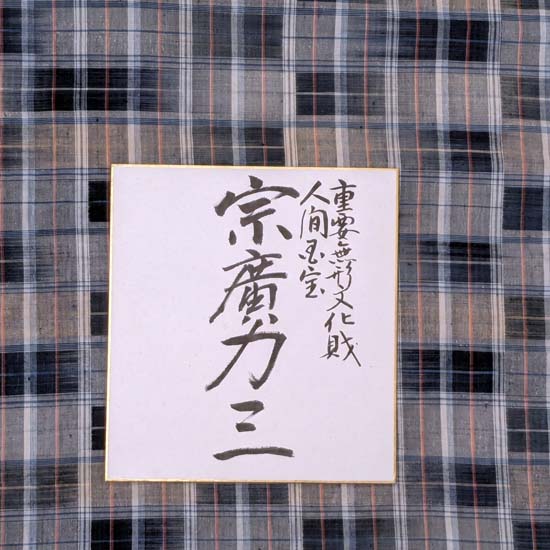 重要無形文化財
人間国宝
宗廣力三